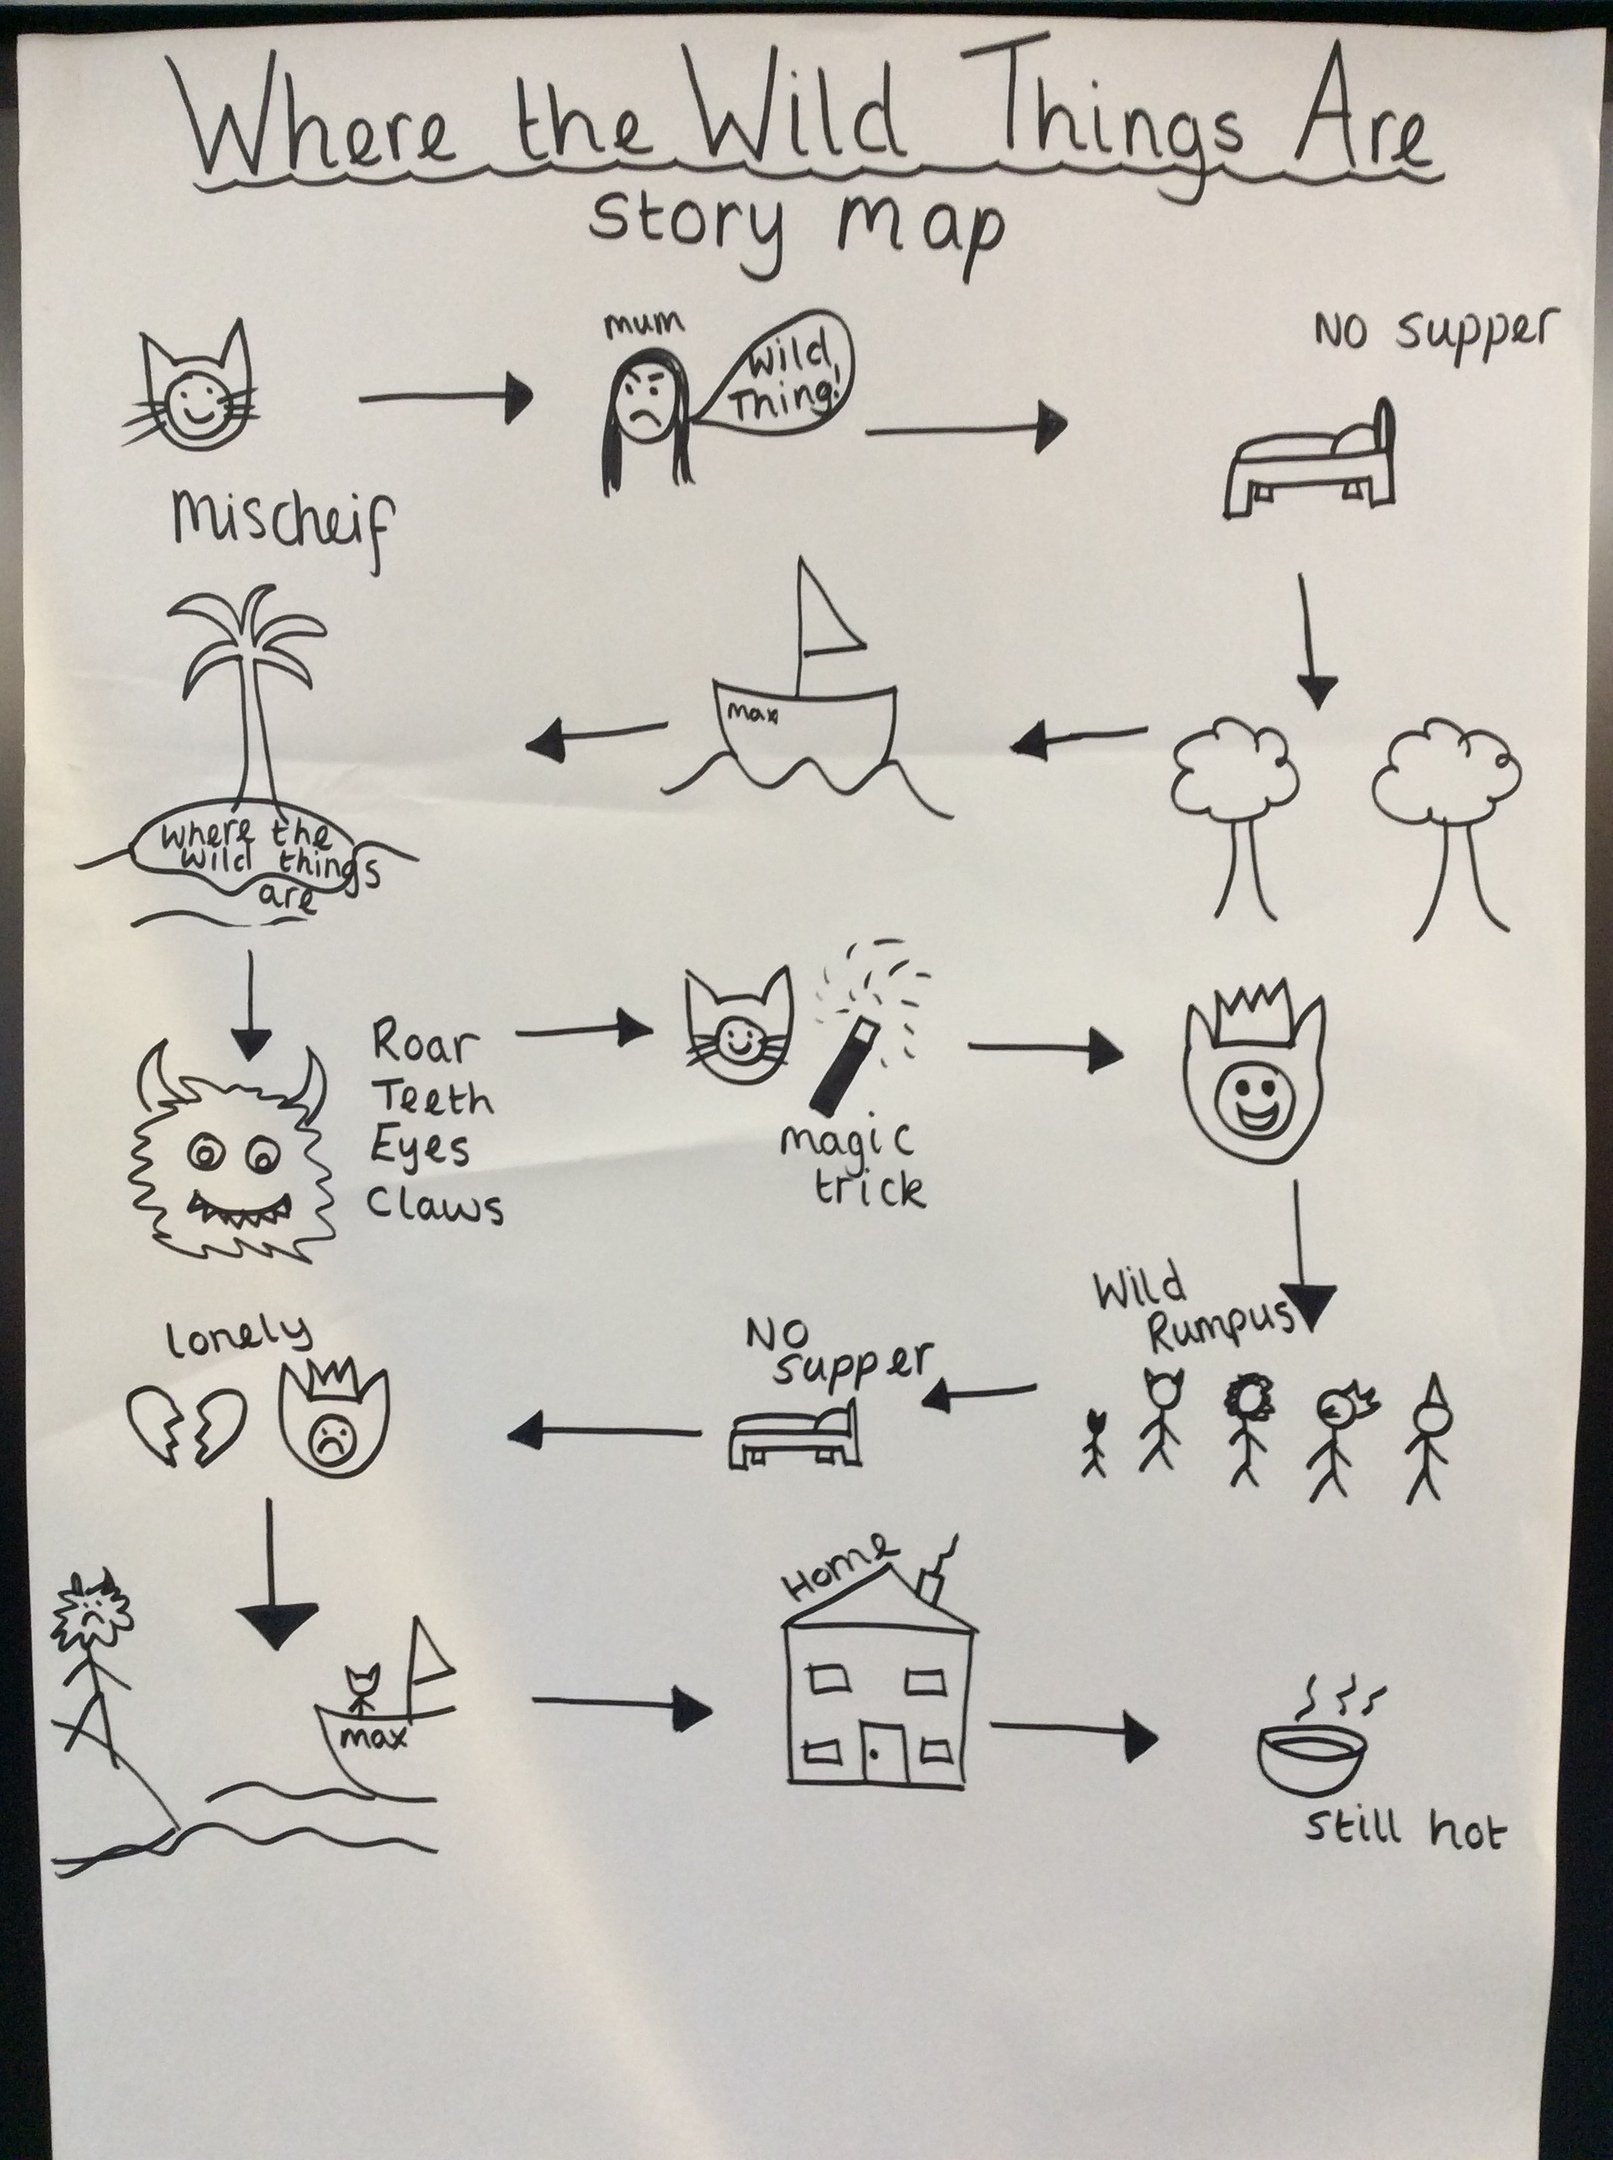 Where the Wild Things Are
Story Map
mum
Wild
Thing!
No supper
Mischeif
max
where the
wild things
are
Roar
Teeth
Eyes
Claws
magic
trick
Wild
Rumpus
No
supper
lonely
max
Home
still hot